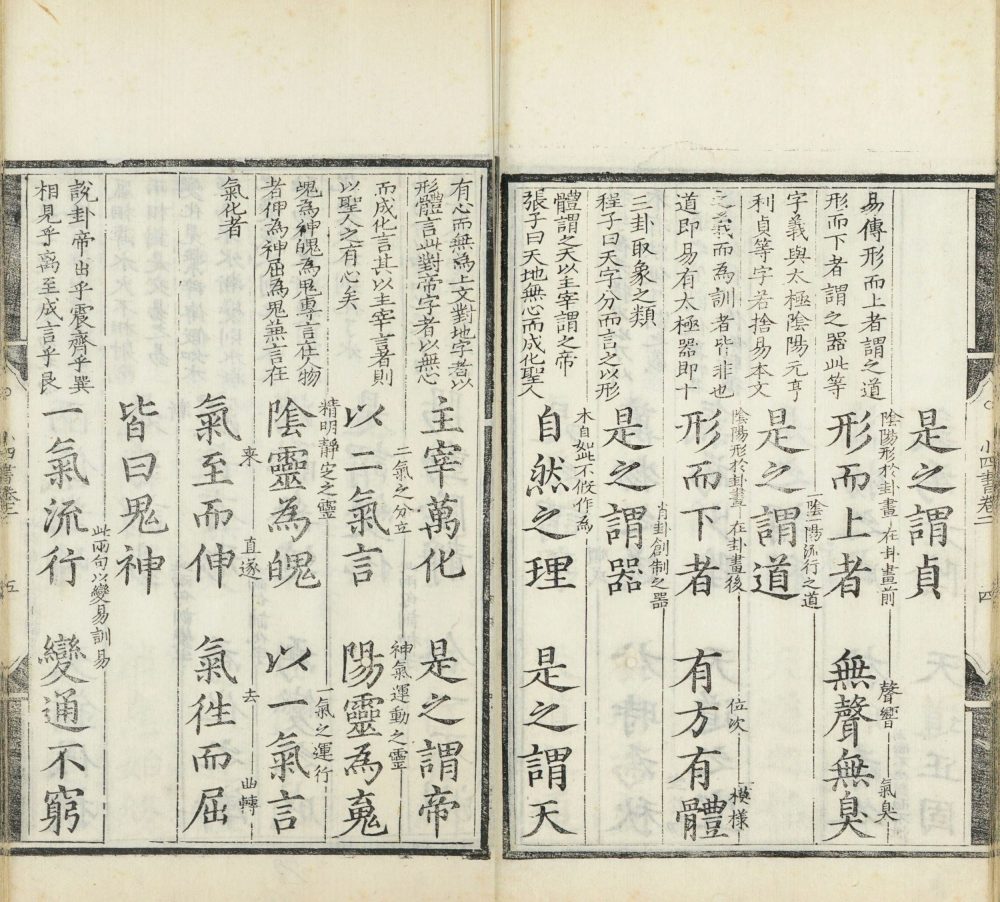 小四書卷二　四
易傳形而上者謂之道
形而下者謂之器此等
字義與太極陰陽元亨
利貞等字若捨易本文
之義而為訓者皆非也
道即易有太極器即十
三卦取象之類
程子曰天字分而言之以形
體謂之天以主宰謂之帝
張子曰天地無心而成化聖人
是之謂貞
陰陽形於卦畫　在卦畫前　聲響　氣臭
形而上者　無聲無臭
一陰一陽流行之道
是之謂道
陰陽形於卦畫　在卦畫後　位次　模樣
形而下者　有方有體
卦創制之器
是之謂器
本自如此不假作為
自然之理　是之謂天
有心而無為上文對地字者以
形體言此對帝字者以無心
而成化言其以主宰言者則
以聖人之有心矣
魂為神魄為鬼專言在物
者伸為神屈為鬼兼言在
氣化者
說卦帝出乎震齊乎巽
相見乎离至成言乎艮
主宰萬化　是之謂帝
二氣之分立　神氣運動之靈
以二氣言　陽靈為䰟
精明靜定之靈　一氣之運行
陰靈為魄　以一氣言
來　直遂　去　曲轉
氣至而伸　氣往而屈
皆曰鬼神
此兩句以變易訓易
一氣流行　變通不窮
小四書卷二　五